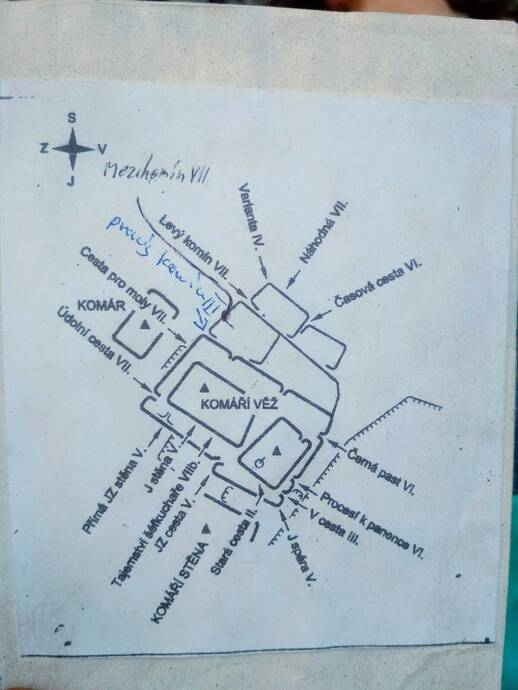 S
Z V
J
Mezikomín VII
Varianta IV.
Náhodná VII.
Levý komín VII.
pravý komín III
Časová cesta VI.
Cesta pro moly VII.
KOMÁR
Údolní cesta VII.
KOMÁŘÍ VĚŽ
Přímá JZ stěna V.
J stěna V.
Tajemství šéfkuchaře VIIb.
JZ cesta V.
KOMÁŘÍ STĚNA
Stará cesta II.
J spára V.
V cesta III.
Procesí k panence VI.
Černá past VI.